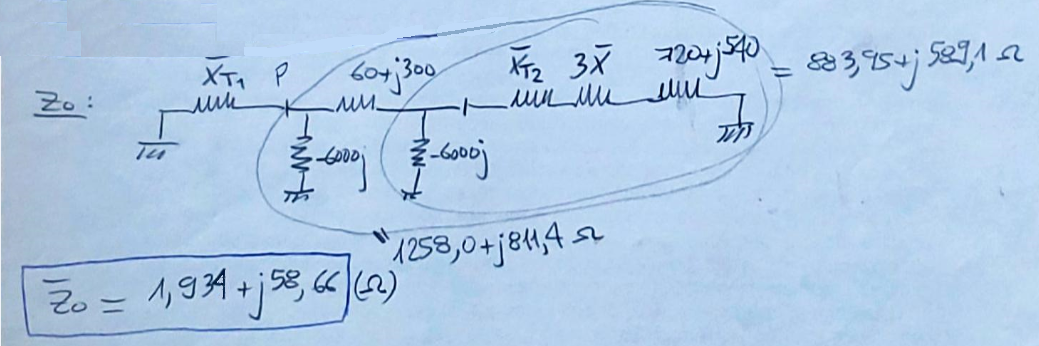 X̅T1 P 60+j300 X̅T2 3X̅ 720+j540 = 883,95+j589,1 Ω
Zo:
-6000j -6000j
" 1258,0+j811,4 Ω
Z̅o = 1,934+j58,66 (Ω)